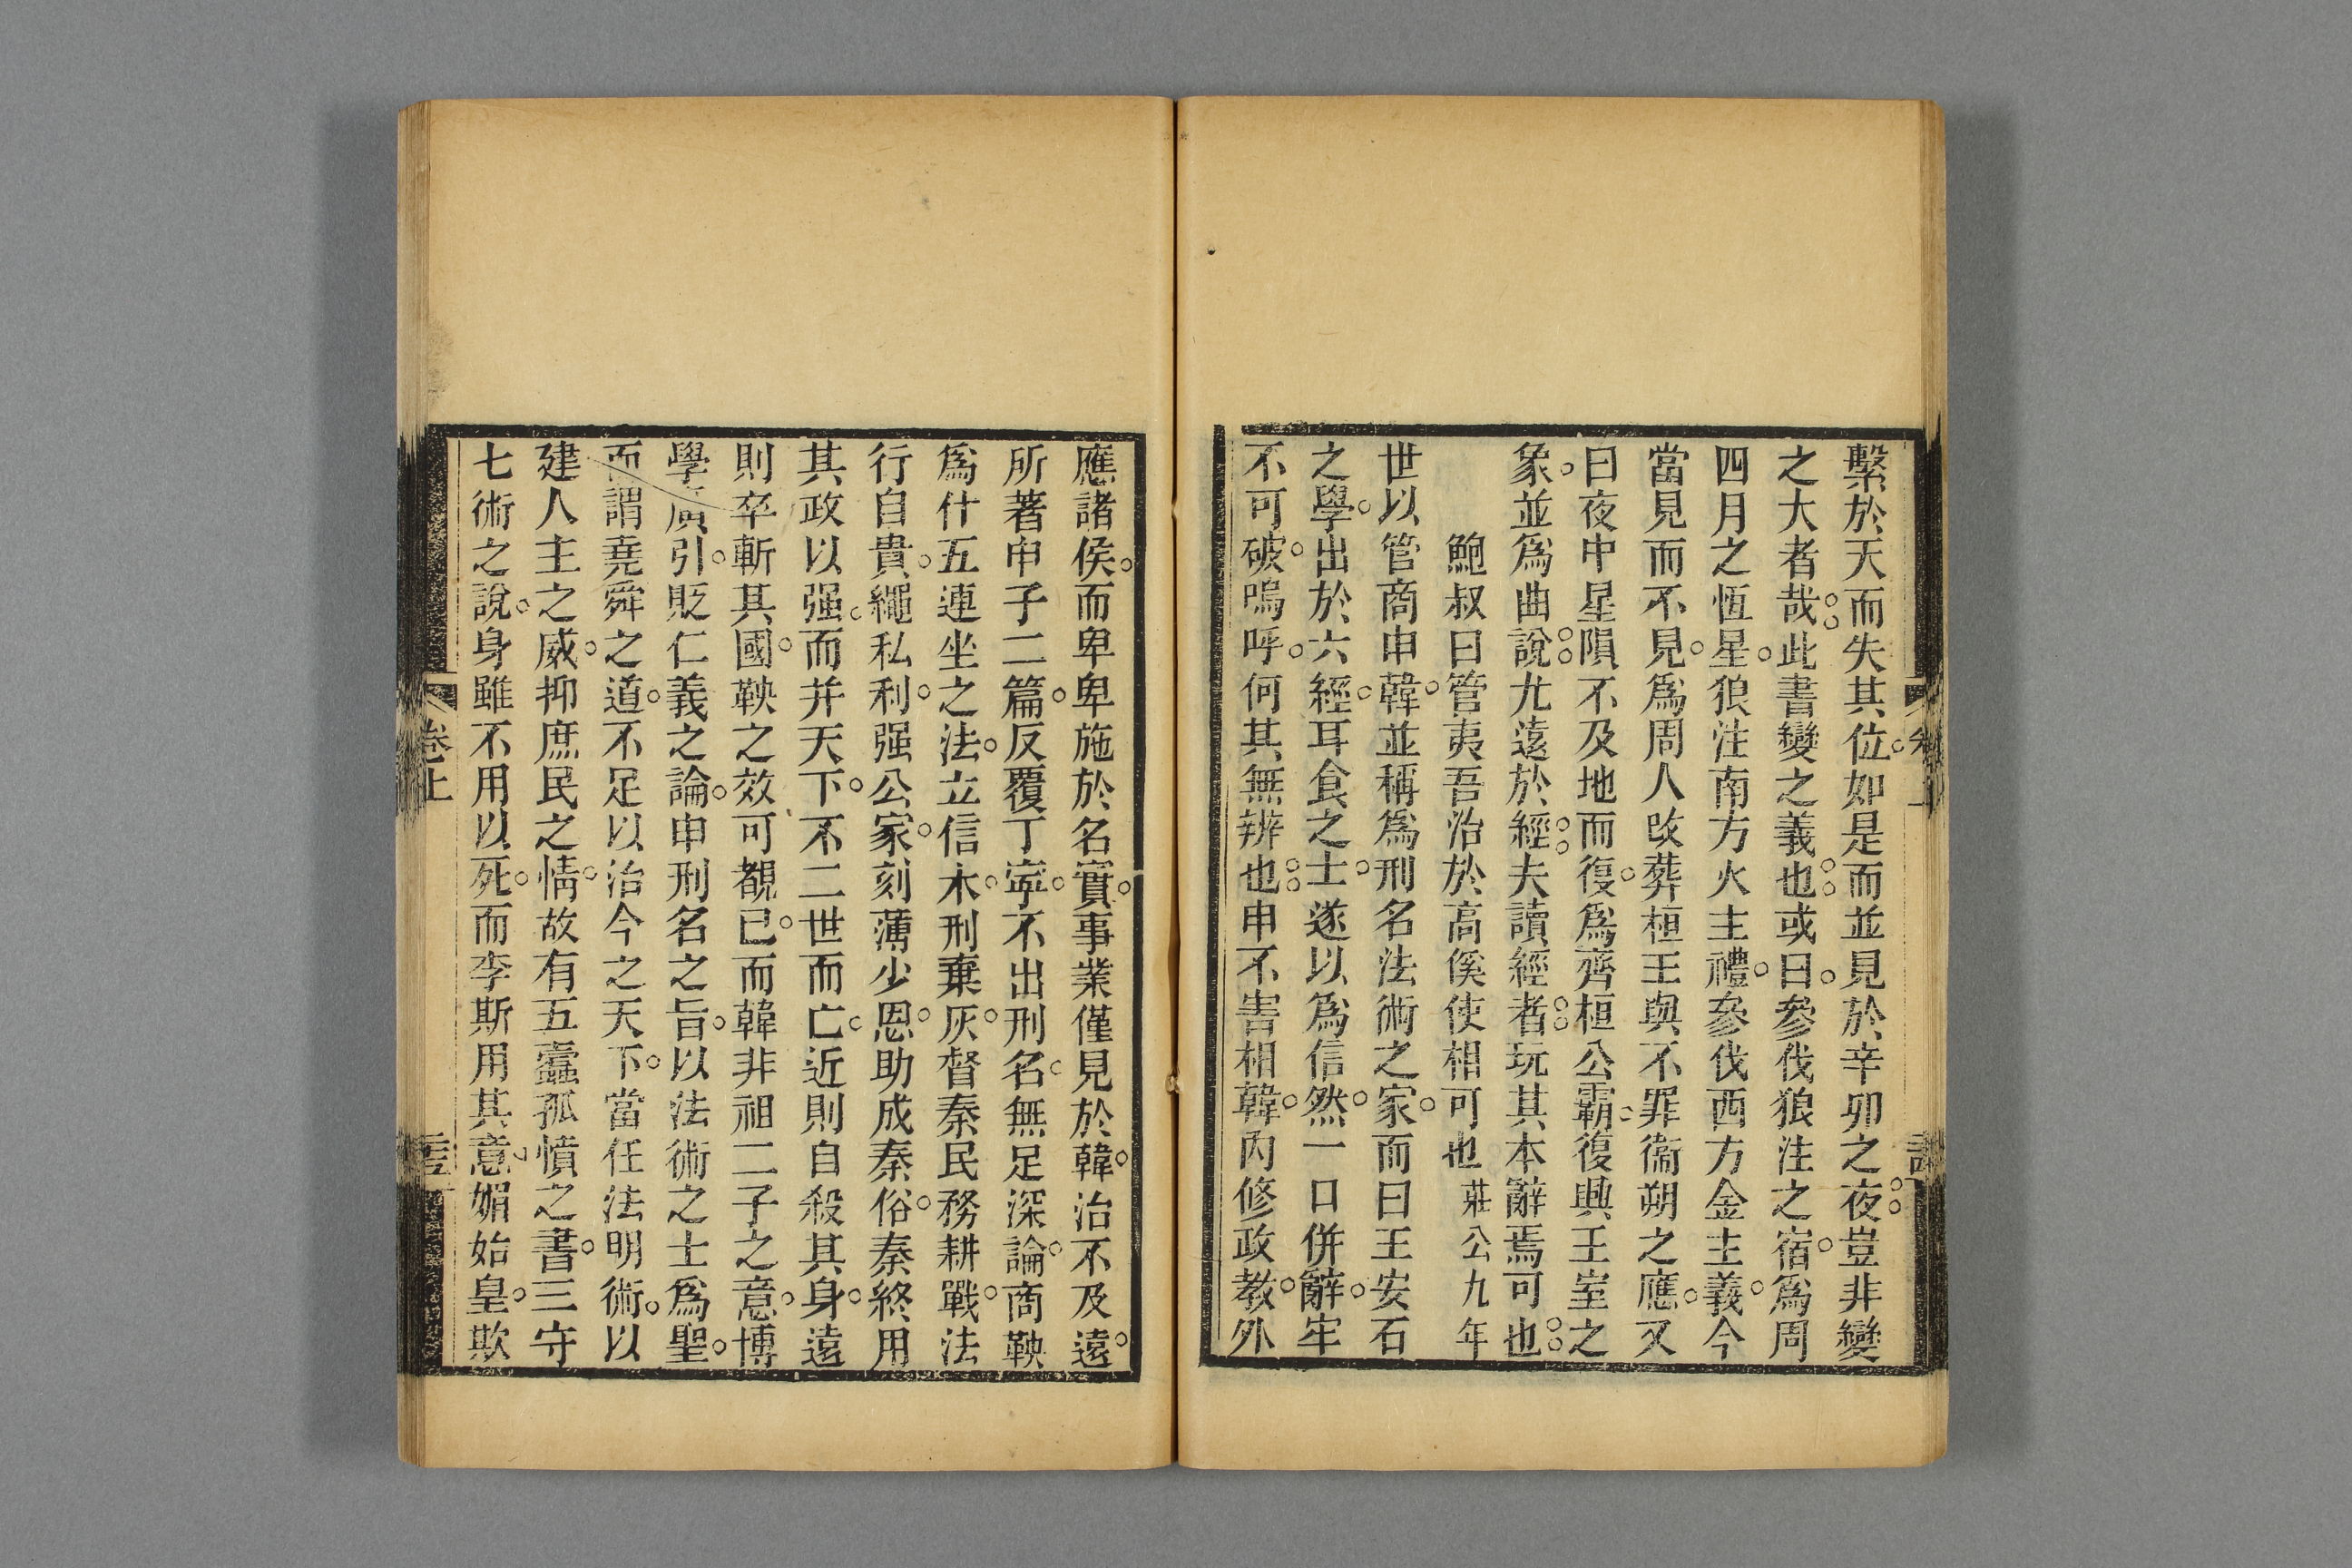 繫於天而失其位。如是而並見於辛卯之夜。豈非變
之大者哉。此書變之義也。或曰。參伐狼注之宿。爲周
四月之恆星。狼注南方火主禮。參伐西方金主義。今
當見而不見。爲周人改葬桓王與不罪衞朔之應。又
曰夜中星隕不及地而復。爲齊桓公霸。復興王室之
象。並爲曲說。尤遠於經。夫讀經者。玩其本辭焉可也。
鮑叔曰管夷吾治於高傒使相可也 莊公九年
世以管商申韓。並稱爲刑名法術之家。而曰王安石
之學。出於六經。耳食之士。遂以爲信然。一口併辭。牢
不可破。嗚呼。何其無辨也。申不害相韓。內修政教。外
應諸侯。而卑卑施於名實。事業僅見於韓。治不及遠。
所著申子二篇。反覆丁寧。不出刑名。無足深論。商鞅
爲什五連坐之法。立信木。刑棄灰。督秦民務耕戰。法
行自貴。繩私利。强公家。刻薄少恩。助成秦俗。秦終用
其政以强。而并天下。不二世而亡。近則自殺其身。遠
則卒斬其國。鞅之效可覩已。而韓非祖二子之意。博
學廣引。貶仁義之論。申刑名之旨。以法術之士爲聖。
而謂堯舜之道。不足以治今之天下。當任法明術。以
建人主之威。抑庶民之情。故有五蠹孤憤之書。三守
七術之說。身雖不用以死。而李斯用其意。媚始皇。欺
卷上